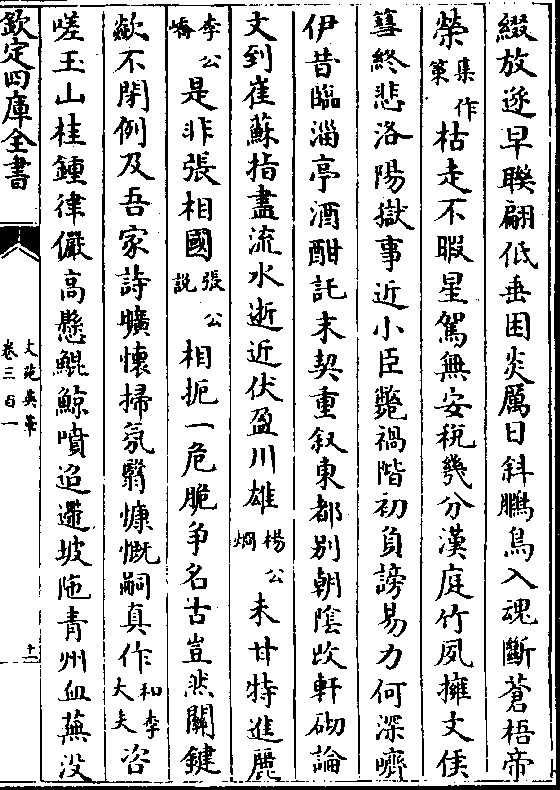 綴放逐早聨翩低垂困炎厲日斜鵬鳥入魂斷蒼梧帝
榮集作策枯走不暇星駕無安税幾分漢庭竹夙擁文侯
篲終悲洛陽獄事近小臣斃禍階初負謗易力何深嚌
伊昔臨淄亭酒酣託末契重叙東都别朝隂改軒砌論
文到崔蘇指盡流水逝近伏盈川雄楊公烱未甘特進麗
李公嶠是非張相國張公説相扼一危脆争名古豈然關鍵
歘不閉例及吾家詩曠懷掃氛翳慷慨嗣真作和李大夫咨
嗟玉山桂鍾律儼高懸鯤鯨噴迢遰坡陁青州血蕪没
欽定四庫全書
文苑英華
卷三百一
十二